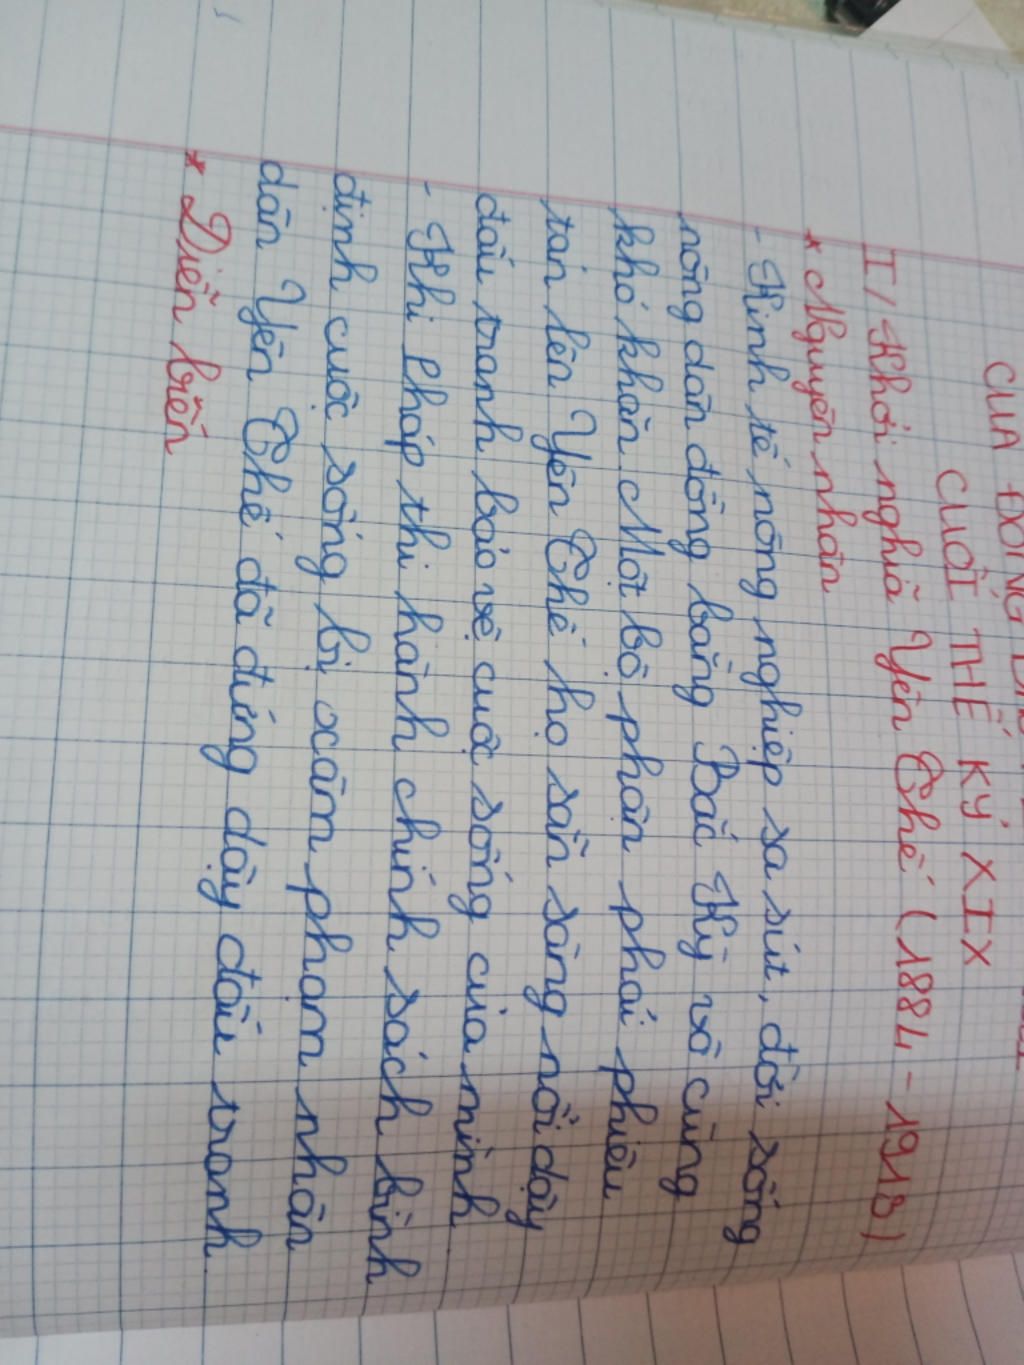 CỦA ĐỒNG
CUỐI THẾ KỶ XIX
I/ Khởi nghĩa Yên Thế (1884 - 1913)
* Nguyên nhân
- Kinh tế nông nghiệp sa sút, đời sống
nông dân đồng bằng Bắc Kỳ vô cùng
khó khăn Một bộ phận phải phiêu
tán lên Yên Thế họ sẵn sàng nổi dậy
đấu tranh bảo vệ cuộc sống của mình
- Khi Pháp thi hành chính sách bình
định cuộc sống bị xâm phạm nhân
dân Yên Thế đã đứng dậy đấu tranh
* Diễn biến